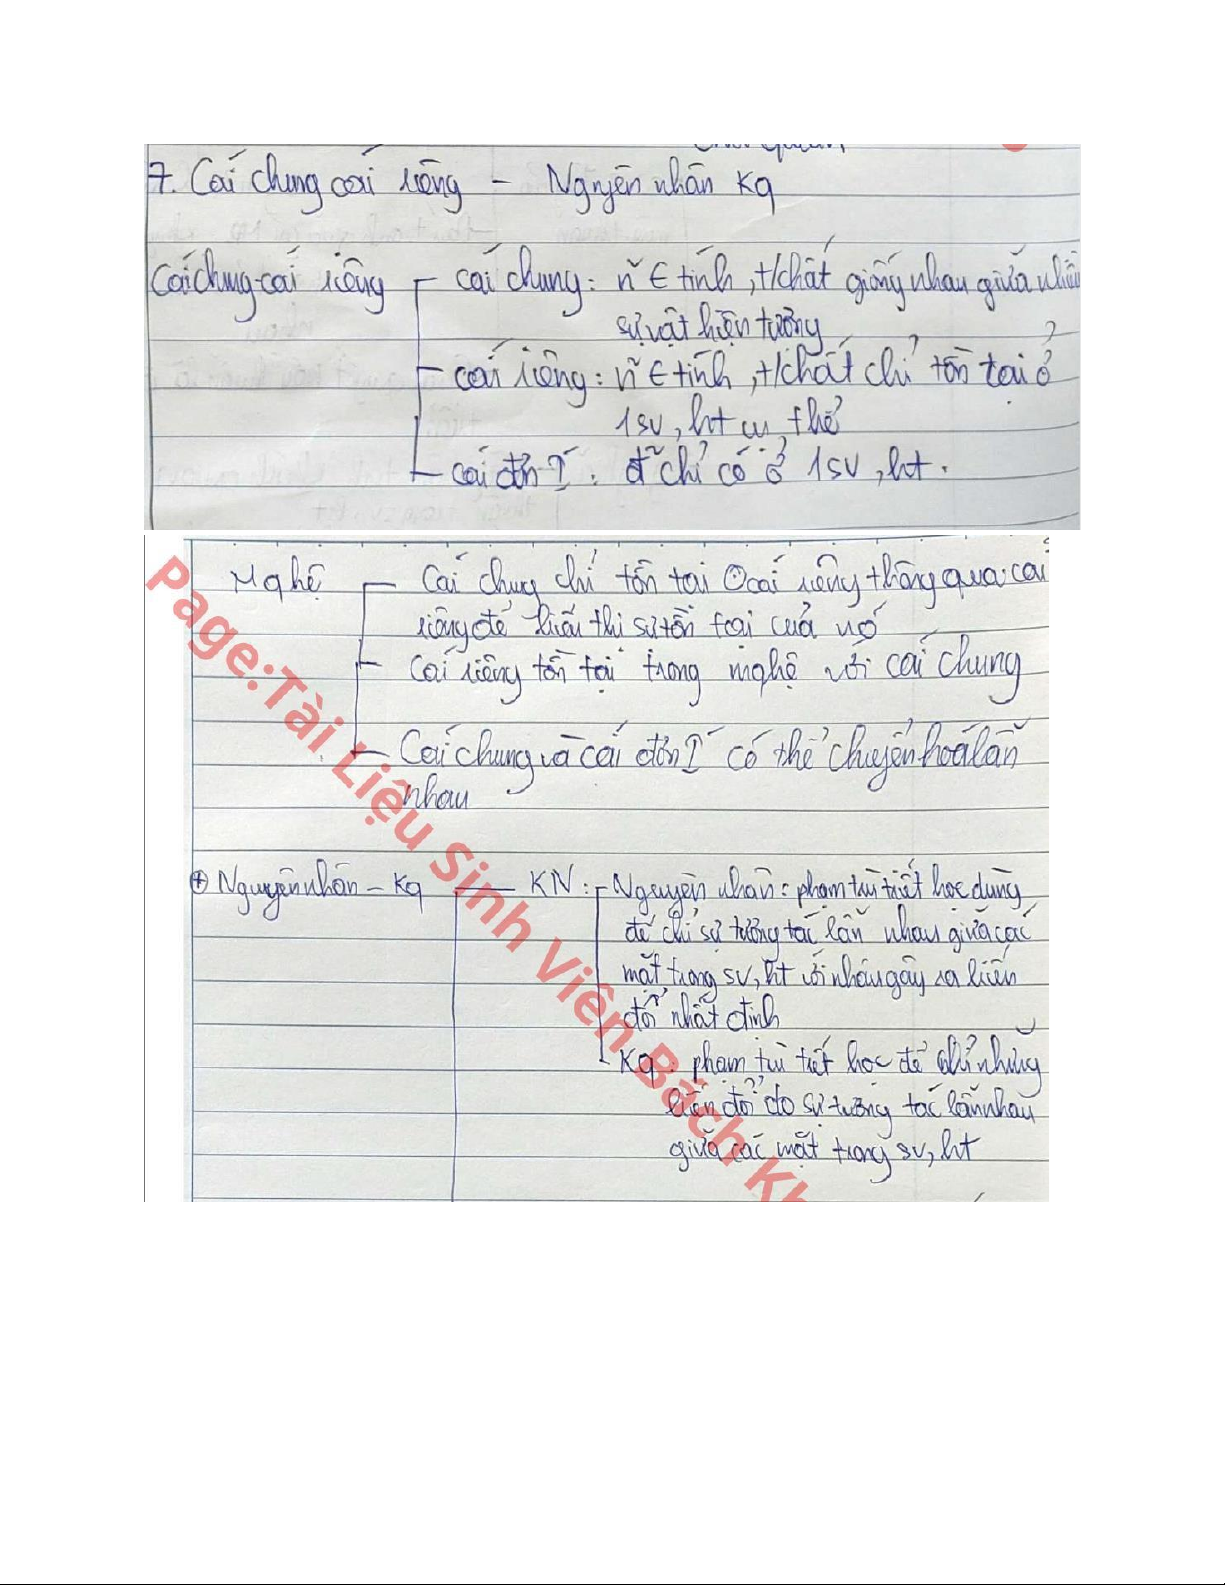 7. Cái chung cái riêng - Nguyên nhân Kq
Cái chung-cái riêng
cái chung: n~ ∈ tính, t/chất giống nhau giữa nhiều
sự vật hiện tượng
cái riêng: n~ ∈ tính, t/chất chỉ tồn tại ở
1 sv, ht cụ thể
cái đơn I: đ~ chỉ có ở 1 sv, ht.
Mqhệ
Cái chung chỉ tồn tại cái riêng thông qua cái
riêng để biểu thị sự tồn tại của nó
Cái riêng tồn tại trong mqhệ với cái chung
Cái chung và cái đơn I có thể chuyển hoá lẫn
nhau
⊕ Nguyên nhân - Kq
KN: Nguyên nhân: phạm trù triết học dùng
để chỉ sự tương tác lẫn nhau giữa các
mặt trong sv, ht với nhau gây ra biến
đổi nhất định
Kq: phạm trù triết học để chỉ những
biến đổi do sự tương tác lẫn nhau
giữa các mặt trong sv, ht
Page: Tài Liệu Sinh Viên Bách Kh